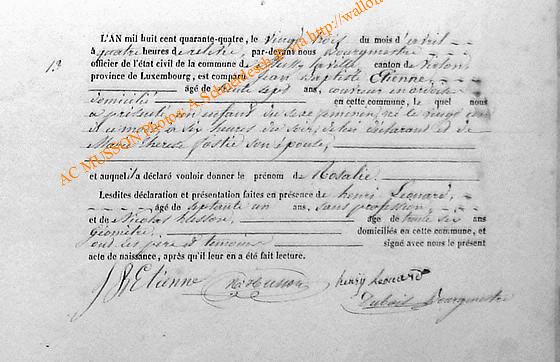 13
L'AN mil huit cent quarante-quatre, le vingt trois du mois d'avril
à quatre heures de relevée, par-devant nous Bourgmestre
officier de l'état civil de la commune de ville canton de
province de Luxembourg, est comparu Jean Baptiste Etienne,
âgé de trente sept ans, couvreur en ardoises
domicilié en cette commune, le quel nous
a présenté un enfant du sexe féminin, né le vingt un
du mois, à six heures du soir, de lui déclarant et de
Marie Therese son épouse,
et auquel il a déclaré vouloir donner le prénom de Rosalie.
Lesdites déclaration et présentation faites en présence de henri Leonard,
âgé de septante un ans, sans profession,
et de Nicolas Husson, âgé de trente six ans
Géomètre, domiciliés en cette commune, et
ont les père et témoins signé avec nous le présent
acte de naissance, après qu'il leur en a été fait lecture.
J B Etienne Ns Husson henry Leonard
Dubois Bourgmestre
AC MUSSON Photos: A.Schmedesch via http://wallo